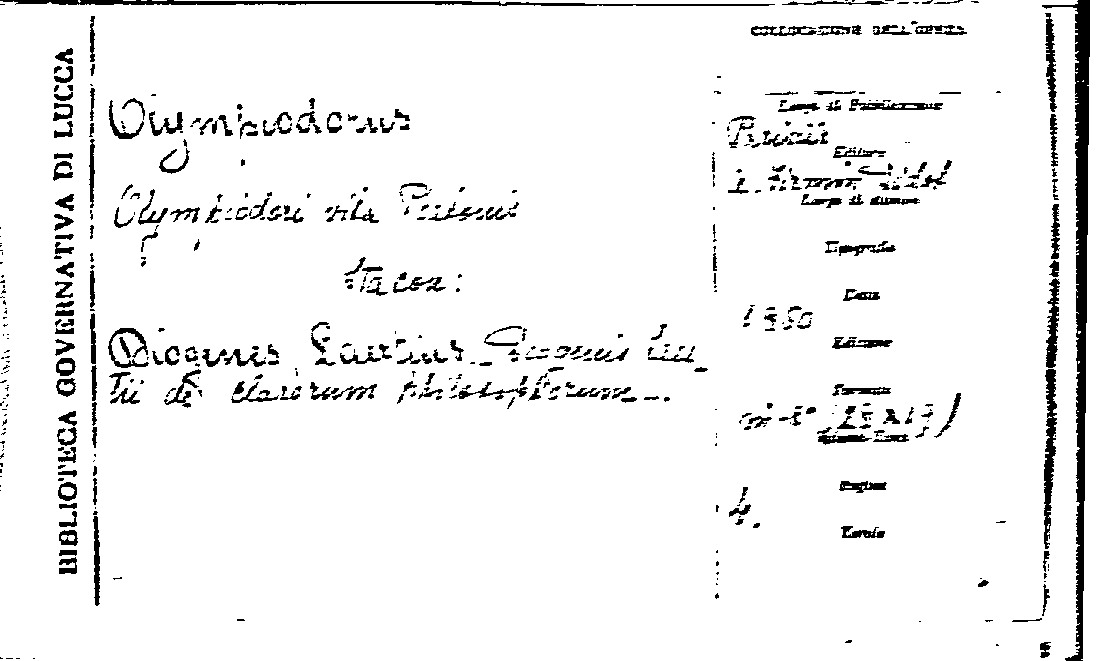 BIBLIOTECA GOVERNATIVA DI LUCCA
COLLOCAZIONE DELL'OPERA
Olympiodorus
Olympiodori vita Platonis
Diogenes Laertius. Diogenis Laer-
tii de clarorum philosophorum...
Luogo di Pubblicazione
Parisiis
Editore
Firmin Didot
Luogo di stampa
Tipografia
Data
1850
Edizione
Formato
in-8°
Pagine
4.
Tavole